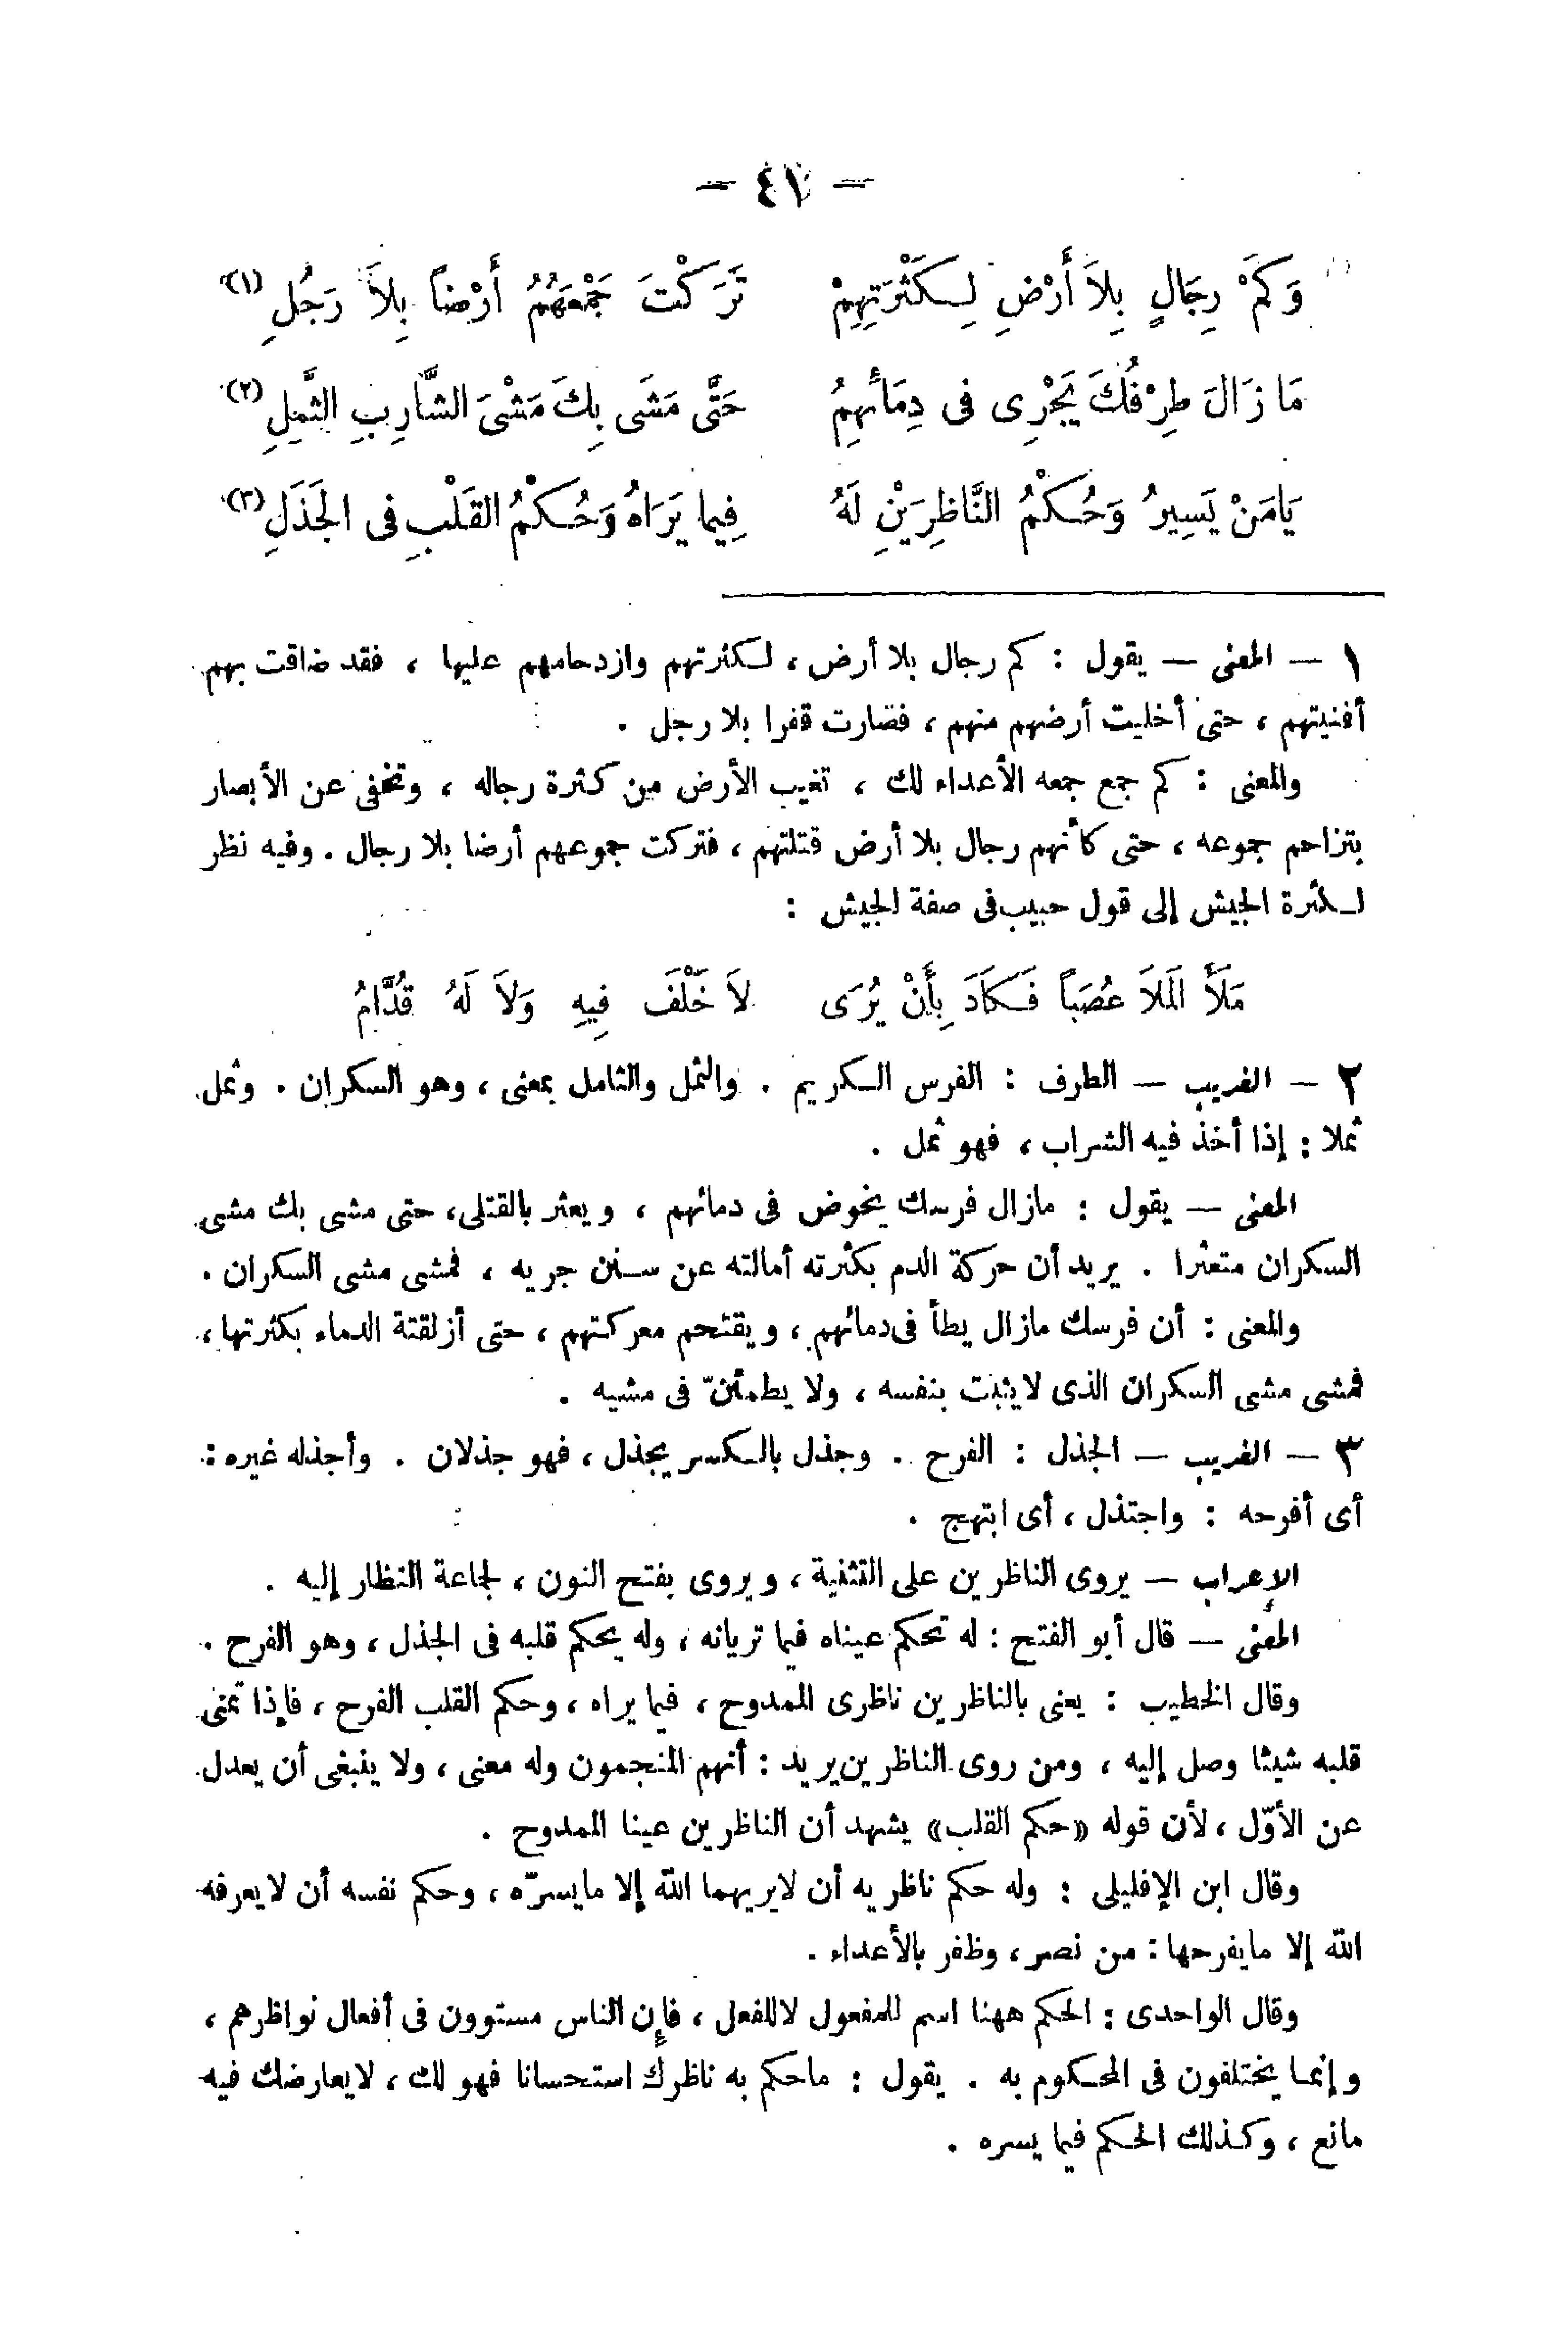 — ٤١ —
وَكَمْ رِجَالٍ بِلاَ أَرْضٍ لِكَثْرَتِهِمْ تَرَكْتَ جَمْعَهُمُ أَرْضاً بِلاَ رَجُلِ (١)
مَا زَالَ طِرْفُكَ يَجْرِى فى دِمَائِهِمُ حَتَّى مَشَى بِكَ مَشْىَ الشَّارِبِ الثَّمِلِ (٢)
يَامَنْ يَسِيرُ وَحُكْمُ النَّاظِرَيْنِ لَهُ فِيما يَرَاهُ وَحُكْمُ القَلْبِ فى الجَذَلِ (٣)
١ — المعنى — يقول : كم رجال بلا أرض ، لكثرتهم وازدحامهم عليها ، فقد ضاقت بهم
أفنيتهم ، حتى أخليت أرضهم منهم ، فصارت قفرا بلا رجل .
والمعنى : كم جمع جمعه الأعداء لك ، تغيب الأرض من كثرة رجاله ، وتخفى عن الأبصار
بتزاحم جموعه ، حتى كأنهم رجال بلا أرض قتلتهم ، فتركت جموعهم أرضا بلا رجال . وفيه نظر
لكثرة الجيش إلى قول حبيب فى صفة الجيش :
مَلَأَ المَلاَ عُصَباً فَكَادَ بِأَنْ يُرَى لاَ خَلْفَ فِيهِ وَلاَ لَهُ قُدَّامُ
٢ — الغريب — الطرف : الفرس الكريم . والثمل والثامل بمعنى ، وهو السكران . وثمل
ثملا : إذا أخذ فيه الشراب ، فهو ثمل .
المعنى — يقول : مازال فرسك يخوض فى دمائهم ، ويعثر بالقتلى ، حتى مشى بك مشى
السكران متعثرا . يريد أن حركة الدم بكثرته أمالته عن سنن جريه ، فمشى مشى السكران .
والمعنى : أن فرسك مازال يطأ فى دمائهم ، ويقتحم معركتهم ، حتى أزلقتة الدماء بكثرتها ،
فمشى مشى السكران الذى لايثبت بنفسه ، ولا يطمئنّ فى مشيه .
٣ — الغريب — الجذل : الفرح . وجذل بالكسر يجذل ، فهو جذلان . وأجذله غيره :
أى أفرحه : واجتذل ، أى ابتهج .
الإعراب — يروى الناظرين على التثنية ، ويروى بفتح النون ، لجاعة النظار إليه .
المعنى — قال أبو الفتح : له تحكم عيناه فيما تريانه ، وله يحكم قلبه فى الجذل ، وهو الفرح .
وقال الخطيب : يعنى بالناظرين ناظرى الممدوح ، فيما يراه ، وحكم القلب الفرح ، فإذا تمنى
قلبه شيئا وصل إليه ، ومن روى الناظرين يريد : أنهم المنجمون وله معنى ، ولا ينبغى أن يعدل
عن الأوّل ، لأن قوله «حكم القلب» يشهد أن الناظرين عينا الممدوح .
وقال ابن الإفليلى : وله حكم ناظريه أن لايريهما الله إلا مايسرّه ، وحكم نفسه أن لايعرفه
الله إلا مايفرحها : من نصر ، وظفر بالأعداء .
وقال الواحدى : الحكم ههنا اسم للمفعول لاللفعل ، فإن الناس مستوون فى أفعال نواظرهم ،
وإنما يختلفون فى المحكوم به . يقول : ماحكم به ناظرك استحسانا فهو لك ، لايعارضك فيه
مانع ، وكذلك الحكم فيما يسره .